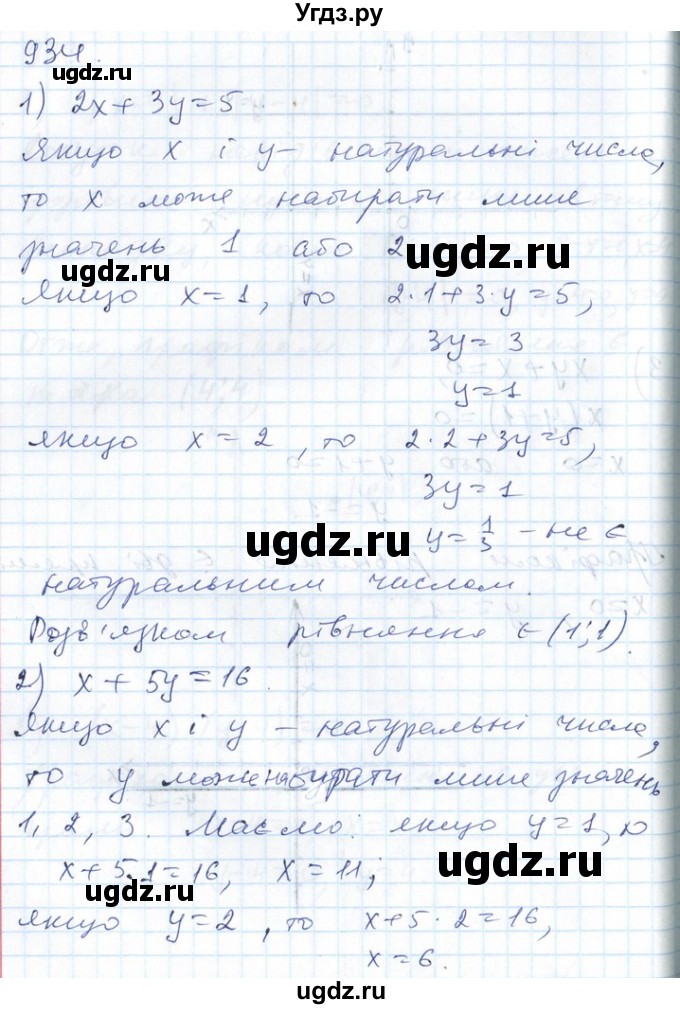 Угдз.ру
934.
ugdz.ru
1) 2x + 3y = 5.
Якщо x і y — натуральні числа,
то x може набирати лише
значень 1 або 2
ugdz.ru
ugdz.ru
Якщо x = 1, то 2·1 + 3·y = 5,
3y = 3
y = 1
якщо x = 2, то 2·2 + 3y = 5,
3y = 1
ugdz.ru
y = 1/3 – не є
натуральним числом.
Розв'язком рівняння є (1;1).
2) x + 5y = 16.
ugdz.ru
Якщо x і y — натуральні числа,
то y може набирати лише значень
1, 2, 3. Маємо: якщо y = 1, то
ugdz.ru
x + 5·1 = 16, x = 11;
ugdz.ru
якщо y = 2, то x + 5·2 = 16,
x = 6.
ugdz.ru